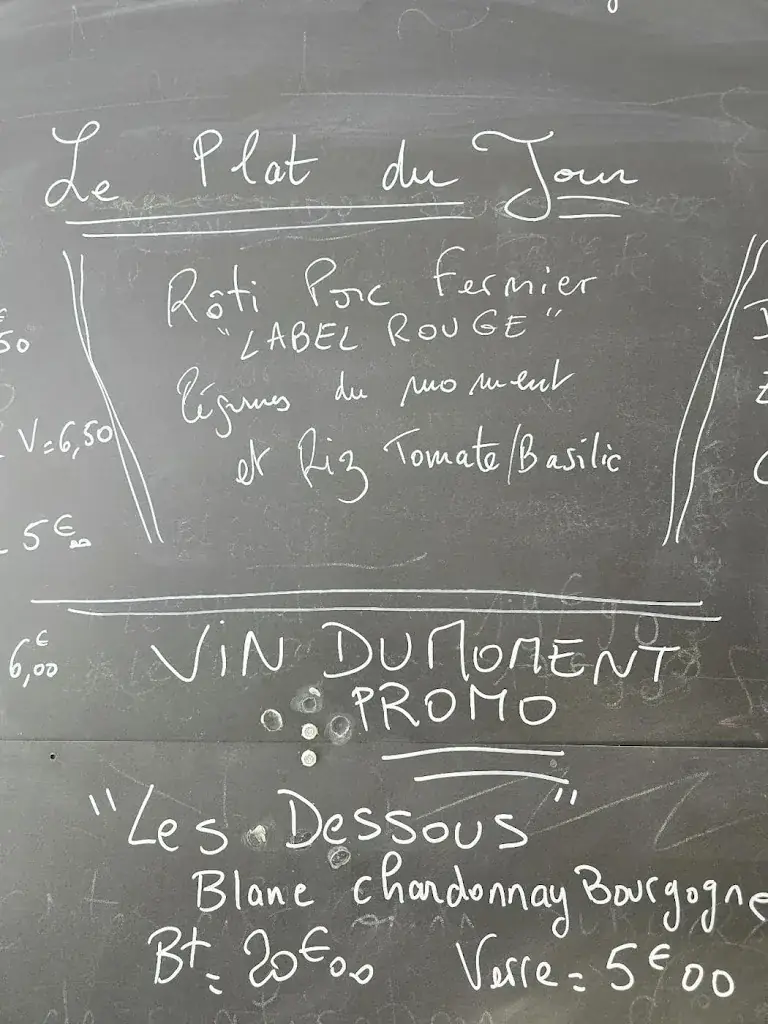 Le Plat du Jour
Rôti Porc Fermier
"LABEL ROUGE"
légumes du moment
et Riz Tomate/Basilic
50
V=6,50
5€
6,00€
VIN DU MOMENT
PROMO
"Les Dessous"
Blanc chardonnay Bourgogne
Bt= 20€00 Verre = 5€00